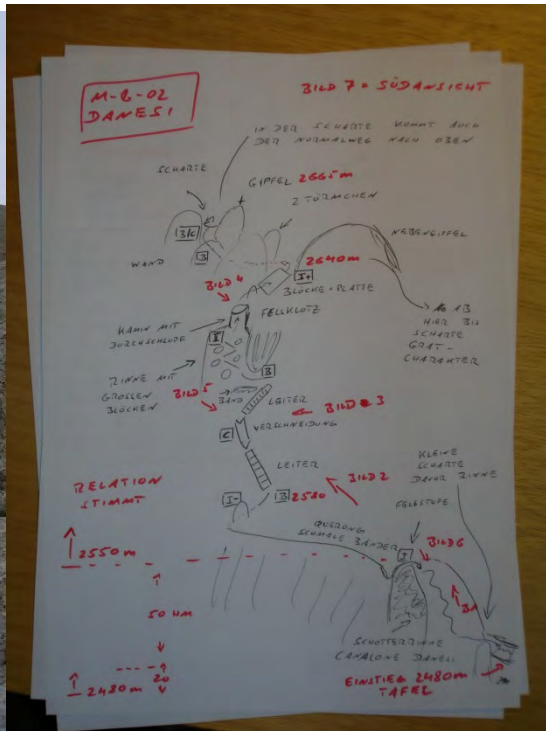 M-2-02
DANESI
BILD 7 = SÜDANSICHT
IN DER SCHARTE KOMMT AUCH
DER NORMALWEG NACH OBEN
SCHARTE
GIPFEL 2665m
2 TÜRMCHEN
B/C
B
WAND
NEBENGIPFEL
2640m
I+
BILD 4
BLÖCKE + PLATTE
FELLKLOTZ
AB
HIER BIS
SCHARTE
GRAT-
CHARAKTER
KAMIN MIT
DURCHSCHLUPF
I
RINNE MIT
GROSSEN
BLÖCKEN
B
BILD 5
BAND
LEITER
BILD 3
C
VERSCHNEIDUNG
KLEINE
SCHARTE
DAVOR RINNE
LEITER
BILD 2
RELATION
STIMMT
I-
B
2580
FELSSTUFE
QUERUNG
SCHMALE BÄNDER
BILD 6
2550m
I
50 HM
SCHOTTERRINNE
CANALONE DANESI
20
2480m
EINSTIEG 2480m
TAFEL